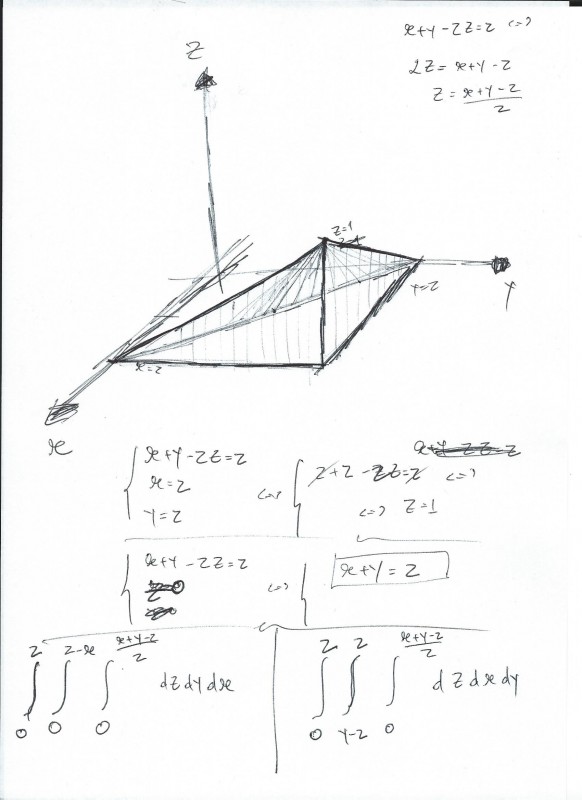 x+y-2z=2 <=>
2z = x+y-2
z = x+y-2
2
z
z=1
y=2
y
x=2
x
{ x+y-2z=2
x=2
y=2
<=> { 2+2-2z=2 <=>
<=> z=1
{ x+y-2z=2
<=> { x+y=2
∫ 0 2 ∫ 0 2-x ∫ 0 x+y-2/2 dz dy dx
∫ 0 2 ∫ y-2 2 ∫ 0 x+y-2/2 dz dx dy